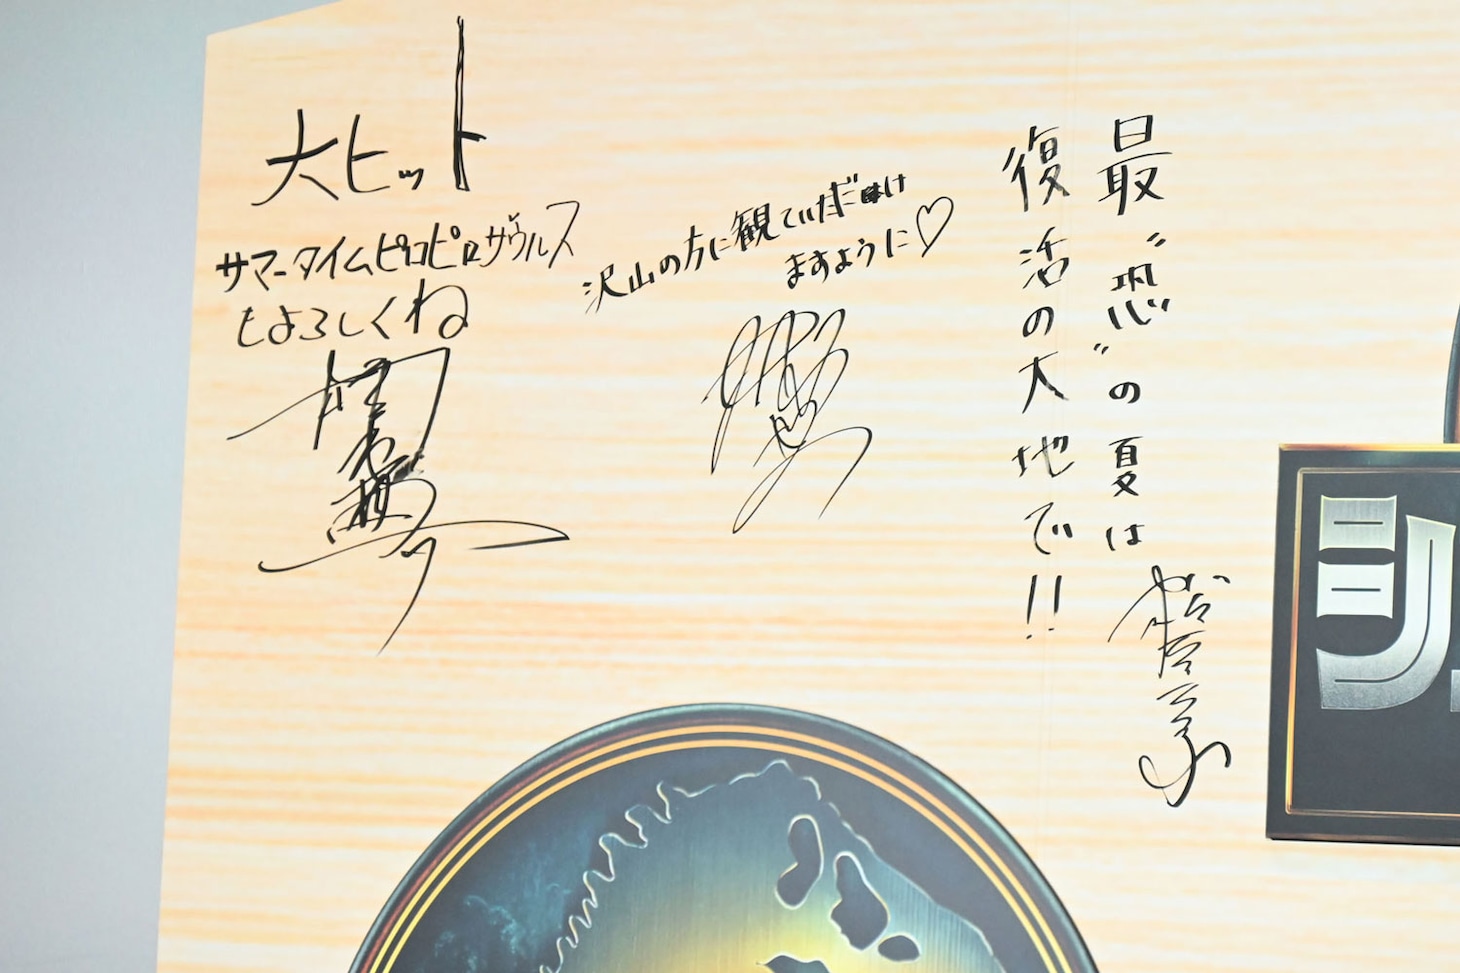 大ヒット
サマータイムピロピロサウルス
もよろしくね
沢山の方に観ていただけ
ますように♡
最“恐”の夏は
復活の大地で!!
ジ